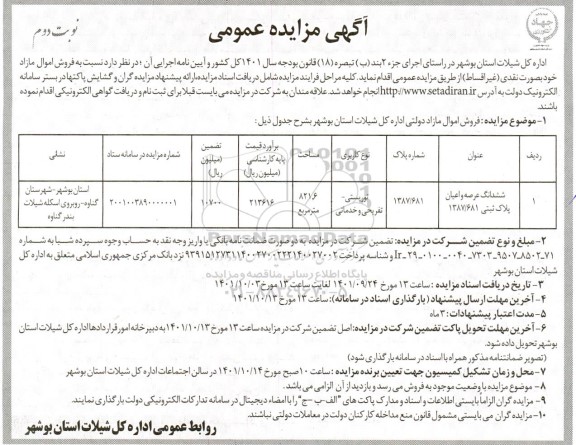 جهاد
آگهی مزایده عمومی
نوبت دوم
اداره کل شیلات استان بوشهر در راستای اجرای جزء ۲ بند (ب) تبصره (۱۸) قانون بودجه سال ۱۴۰۱ کل کشور و آیین نامه اجرایی آن، در نظر دارد نسبت به فروش اموال مازاد
خود بصورت نقدی (غیر اقساط) از طریق مزایده عمومی اقدام نماید. کلیه مراحل فرایند مزایده شامل دریافت اسناد مزایده، ارائه پیشنهاد مزایده گران و گشایش پاکتها در بستر سامانه
الکترونیک دولت به آدرس http://www.setadiran.ir انجام خواهد شد. علاقه مندان به شرکت در مزایده می بایست قبلا برای ثبت نام و دریافت گواهی الکترونیکی اقدام نموده
باشند.
۱- موضوع مزایده: فروش اموال مازاد دولتی اداره کل شیلات استان بوشهر بشرح جدول ذیل:
ردیف | عنوان | شماره پلاک | نوع کاربری | مساحت | برآورد قیمت پایه کارشناسی (میلیون ریال) | تضمین (میلیون ریال) | شماره مزایده در سامانه ستاد | نشانی
۱ | ششدانگ عرصه و اعیان پلاک ثبتی ۱۳۸۷/۶۸۱ | ۱۳۸۷/۶۸۱ | توریستی- تفریحی و خدماتی | ۸۲۱.۶ مترمربع | ۲۱۳۶۱۶ | ۱۰۷۰۰ | ۲۰۰۱۰۰۳۸۹۰۰۰۰۰۰۱ | استان بوشهر-شهرستان گناوه-روبروی اسکله شیلات بندر گناوه
۲- مبلغ و نوع تضمین شرکت در مزایده: تضمین شرکت در مزایده به دو صورت ضمانت نامه بانکی یا واریز وجه نقد به حساب وجوه سپرده شبا به شماره
نزد بانک مرکزی جمهوری اسلامی متعلق به اداره کل
شیلات استان بوشهر
۳- تاریخ دریافت اسناد مزایده: ساعت ۱۳ مورخ ۱۴۰۱/۰۹/۲۴ لغایت ساعت ۱۳ مورخ ۱۴۰۱/۱۰/۰۳
۴- آخرین مهلت ارسال پیشنهاد (بارگذاری اسناد در سامانه): ساعت ۱۳ مورخ ۱۴۰۱/۱۰/۱۳
۵- مدت اعتبار پیشنهادات: ۳ ماه
۶- آخرین مهلت تحویل پاکت تضمین شرکت در مزایده: اصل تضمین شرکت در مزایده ساعت ۱۳ مورخ ۱۴۰۱/۱۰/۱۳ به دبیرخانه امور قراردادها اداره کل شیلات استان
بوشهر تحویل داده شود.
(تصویر ضمانتنامه مذکور همراه با اسناد در سامانه بارگذاری شود)
۷- محل و زمان تشکیل کمیسیون جهت تعیین برنده مزایده: ساعت ۱۰ صبح مورخ ۱۴۰۱/۱۰/۱۴ در سالن اجتماعات اداره کل شیلات استان بوشهر
۸- موضوع مزایده با وضعیت موجود به فروش می رسد و بازدید از آن الزامی می باشد.
۹- مزایده گران الزاما بایستی اطلاعات و اسناد و مدارک پاکت های "الف-ب-ج" را با امضاء دیجیتال در سامانه تدارکات الکترونیکی دولت بارگذاری نمایند.
۱۰- مزایده گران می بایستی مشمول قانون منع مداخله کارکنان دولت در معاملات دولتی نباشند.
روابط عمومی اداره کل شیلات استان بوشهر